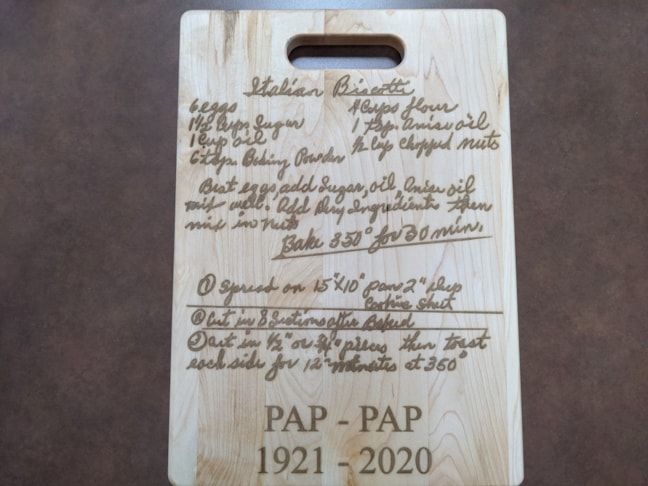 Italian Biscotti
6 eggs
1 1/2 Cups Sugar
1 Cup oil
6 tsp. Baking Powder
4 Cups flour
1 tsp. Anise oil
1/2 Cup chopped nuts
Beat eggs, add Sugar, oil, Anise oil
mix well. Add Dry Ingredients then
mix in nuts
Bake 350° for 30 min.
① Spread on 15"X10" pan 2" deep
Cookie Sheet
② Cut in 8 Sections after Baked
③ Cut in 1/2" or 3/4" pieces then toast
each side for 12" minutes at 350°
PAP - PAP
1921 - 2020